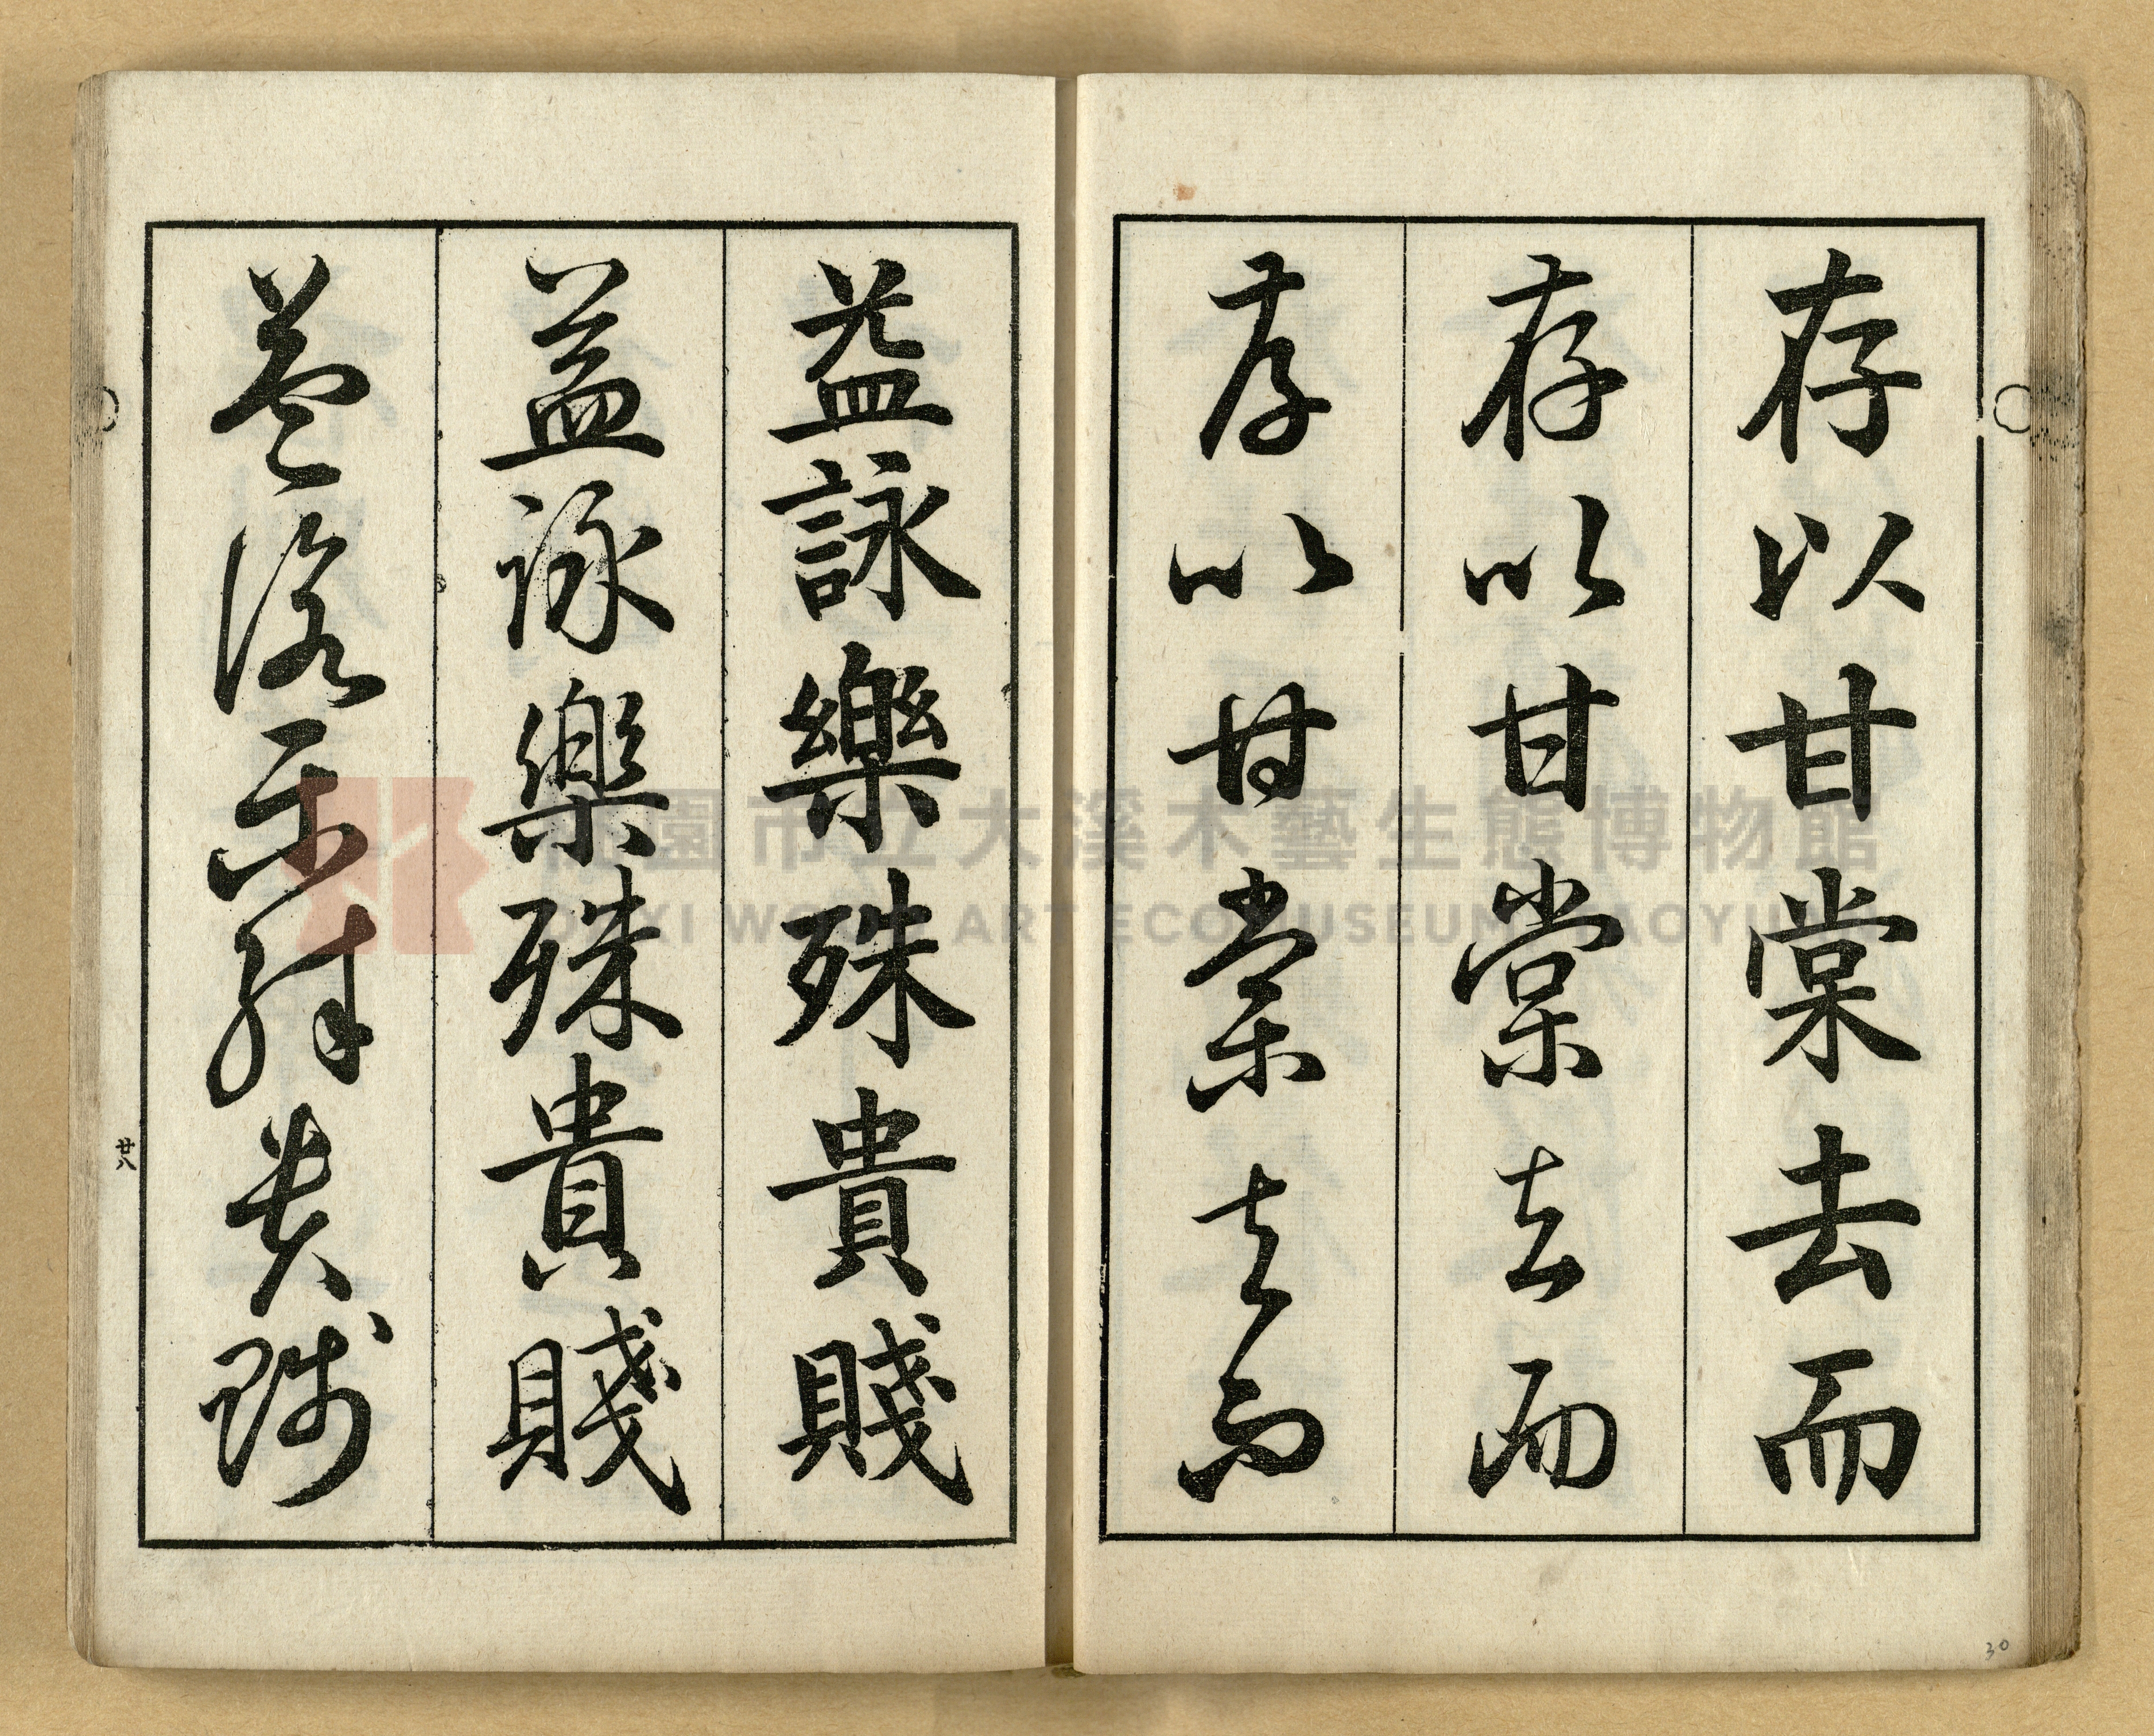 存以甘棠去而
存以甘棠去而
存以甘棠去而
益詠樂殊貴賤
益詠樂殊貴賤
益詠樂殊貴賤
廿八
30
桃園市立大溪木藝生態博物館
DAXI WOOD ART ECOMUSEUM, TAOYUAN